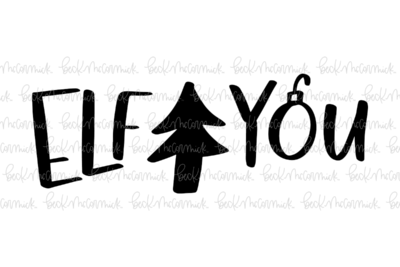 ELF YOU